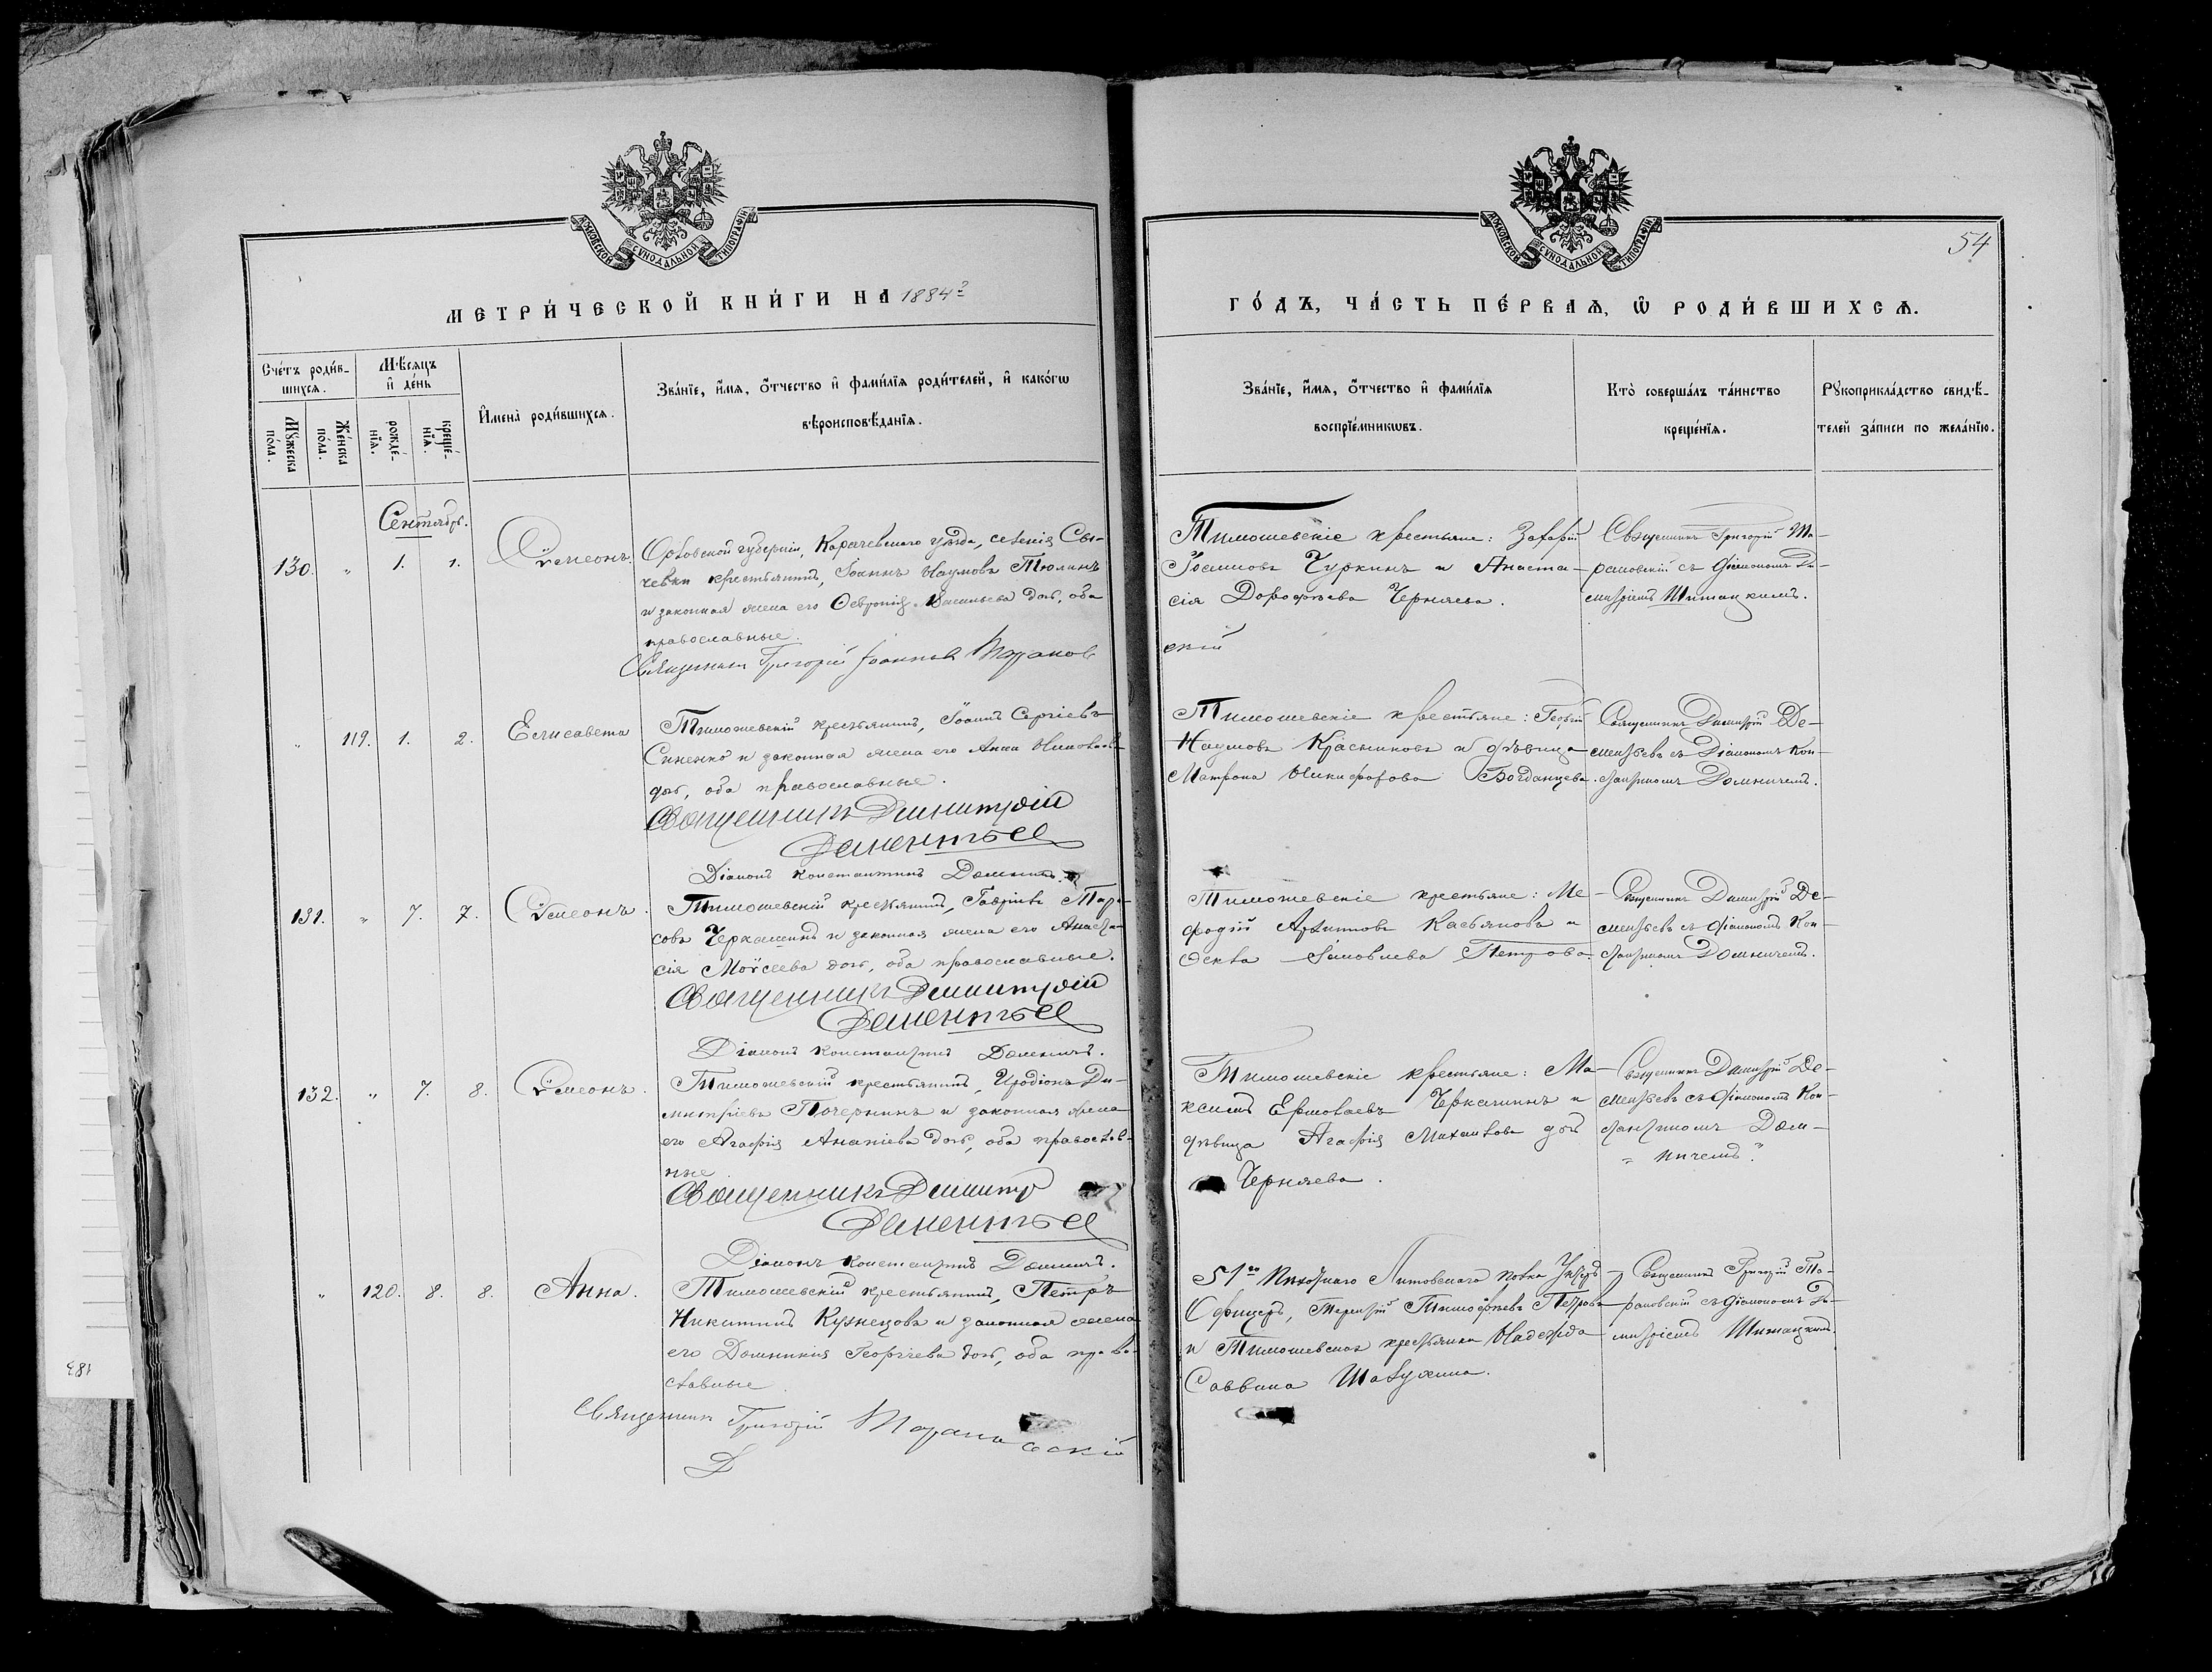 МОСКОВСКОЙ СУНОДАЛЬНОЙ ТИПОГРАФІИ
МЕТРИЧЕСКОЙ КНИГИ НА 1884й
Счетъ родив-
шихся.
Мѣсяцъ
и день
Мужеска
пола.
Женска
пола.
рожде-
нія.
креще-
нія.
Имена родившихся.
Званіе, имя, отчество и фамилія родителей, и какого
вѣроисповѣданія.
Сентябрь.
130. " 1. 1. Сѵмеонъ
Орловской губерніи, Карачевскаго уѣзда, селенія Сы-
чевки крестьянинъ, Іоаннъ Наумовъ Тюлинъ
и законная жена его Ѳевронія Васильева дочь, оба
православные.
Священникъ Григорій Іоанновъ Таранов
" 119. 1. 2. Елисавета
Тимошевскій крестьянинъ, Іоаннъ Сергіевъ
Синенко и законная жена его Анна Николаева
дочь, оба православные.
Священникъ Димитрій
Дементьев
Діаконъ Константинъ Домничъ.
131. " 7. 7. Сѵмеонъ.
Тимошевскій крестьянинъ, Гавріилъ Тара-
совъ Черкашинъ и законная жена его Анаста-
сія Моѵсеева дочь, оба православные.
Священникъ Димитрій
Дементьев
Діаконъ Константинъ Домничъ.
132. " 7. 8. Сѵмеонъ.
Тимошевскій крестьянинъ, Иродіонъ Ди-
митріевъ Почернинъ и законная жена
его Агафія Ананіева дочь, оба православ-
ные
Священникъ Димитр
Дементьев
Діаконъ Константинъ Домничъ.
" 120. 8. 8. Анна.
Тимошевскій крестьянинъ, Петръ
Никитинъ Кузнецовъ и законная жена
его Домникія Георгіева дочь, оба право-
славные
Священникъ Григорій Тарановскій
Д
МОСКОВСКОЙ СУНОДАЛЬНОЙ ТИПОГРАФІИ
54
ГОДЪ, ЧАСТЬ ПЕРВАЯ, Ѡ РОДИВШИХСЯ.
Званіе, имя, отчество и фамилія
воспріемниковъ.
Кто совершалъ таинство
крещенія.
Рукоприкладство свидѣ-
телей записи по желанію.
Тимошевскіе крестьяне: Захарій
Іоанновъ Чуркинъ и Анаста-
сія Дорофѣева Черняева.
скій
Священникъ Григорій Та-
рановскій съ Діакономъ Ди-
митріемъ Шитацкимъ.
Тимошевскіе крестьяне: Георгій
Наумовъ Красниковъ и дѣвица
Матрона Никифорова Богданцева.
Священникъ Димитрій Де-
ментьевъ съ Діакономъ Кон-
стантиномъ Домничемъ.
Тимошевскіе крестьяне: Ме-
фодій Архиповъ Касьяновъ и
Ѳекла Іаковлева Петрова
Священникъ Димитрій Де-
ментьевъ съ Діакономъ Кон-
стантиномъ Домничемъ.
Тимошевскіе крестьяне: Ма-
ксимъ Ермолаевъ Черкашинъ и
дѣвица Агафія Михаилова дочь
Черняева.
Священникъ Димитрій Де-
ментьевъ съ Діакономъ Кон-
стантиномъ Дом-
ничемъ."
51го Пѣхотнаго Литовскаго полка Унтеръ-
Офицеръ, Терентій Тимофѣевъ Петровъ
и Тимошевская крестьянка Надежда
Саввина Шалухина.
Священникъ Григорій Та-
рановскій съ Діакономъ Ди-
митріемъ Шитацкимъ.
183